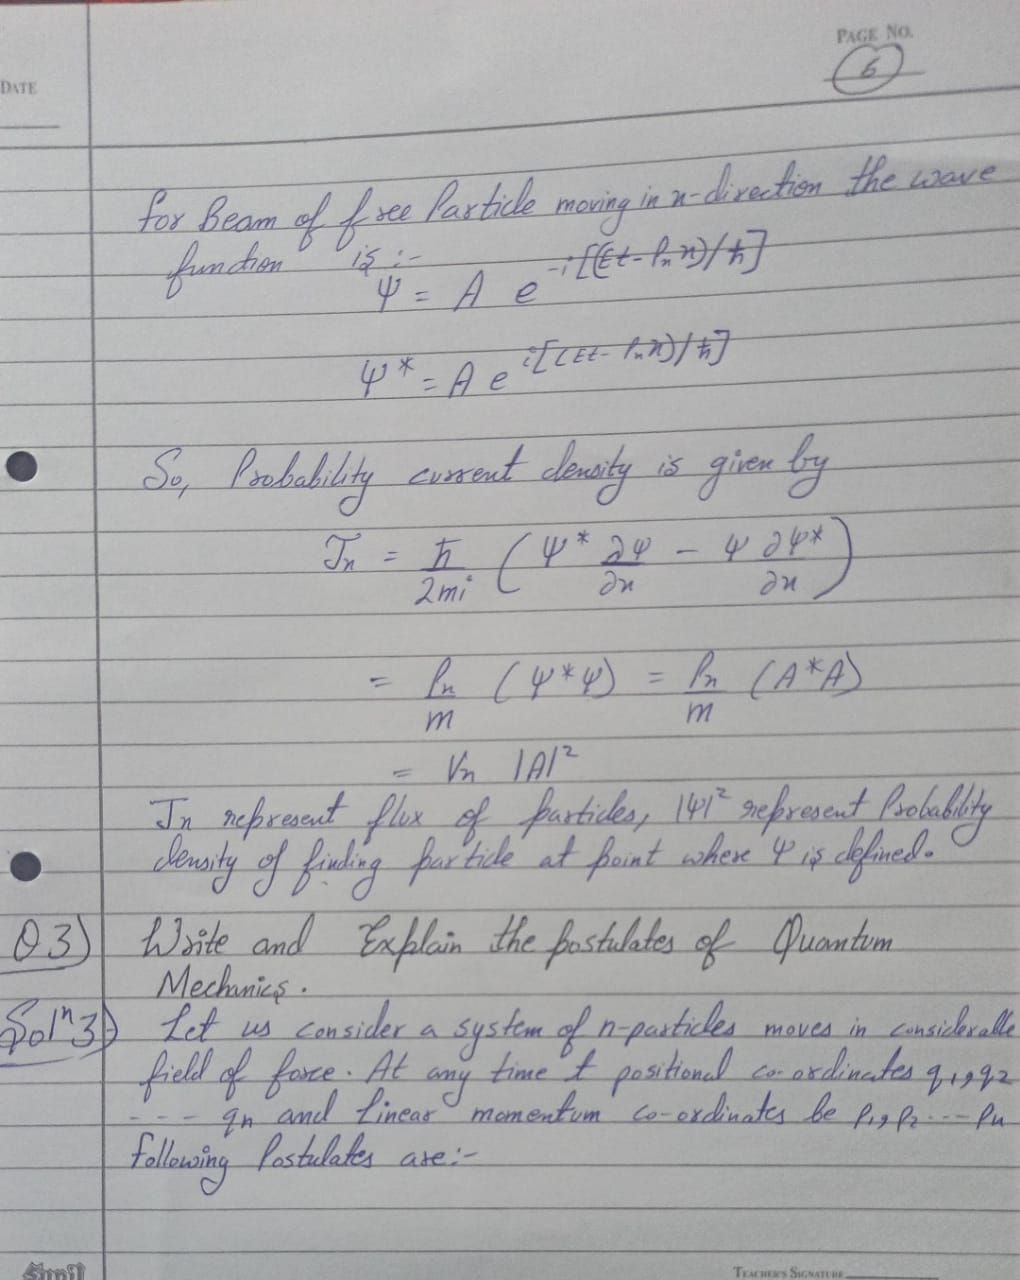 PAGE NO.
6
DATE
for Beam of free Particle moving in x-direction the wave
function is :-
Ψ = A e^{-i[(Et-Pxx)/ħ]}
Ψ* = A e^{i[(Et-Pxx)/ħ]}
So, Probability current density is given by
Jx = ħ/2mi (Ψ* ∂Ψ/∂x - Ψ ∂Ψ*/∂x)
= Px/m (Ψ*Ψ) = Px/m (A*A)
= Vx |A|²
Jx represent flux of particles, |Ψ|² represent Probability
density of finding particle at point where Ψ is defined.
Q3) Write and Explain the postulates of Quantum
Mechanics.
Solⁿ3) Let us consider a system of n-particles moves in
field of force. At any time t positional co-ordinates q1, q2
---- qn and linear momentum co-ordinates be P1, P2 ---- Pn
following Postulates are:-
Sunil
TEACHER'S SIGNATURE